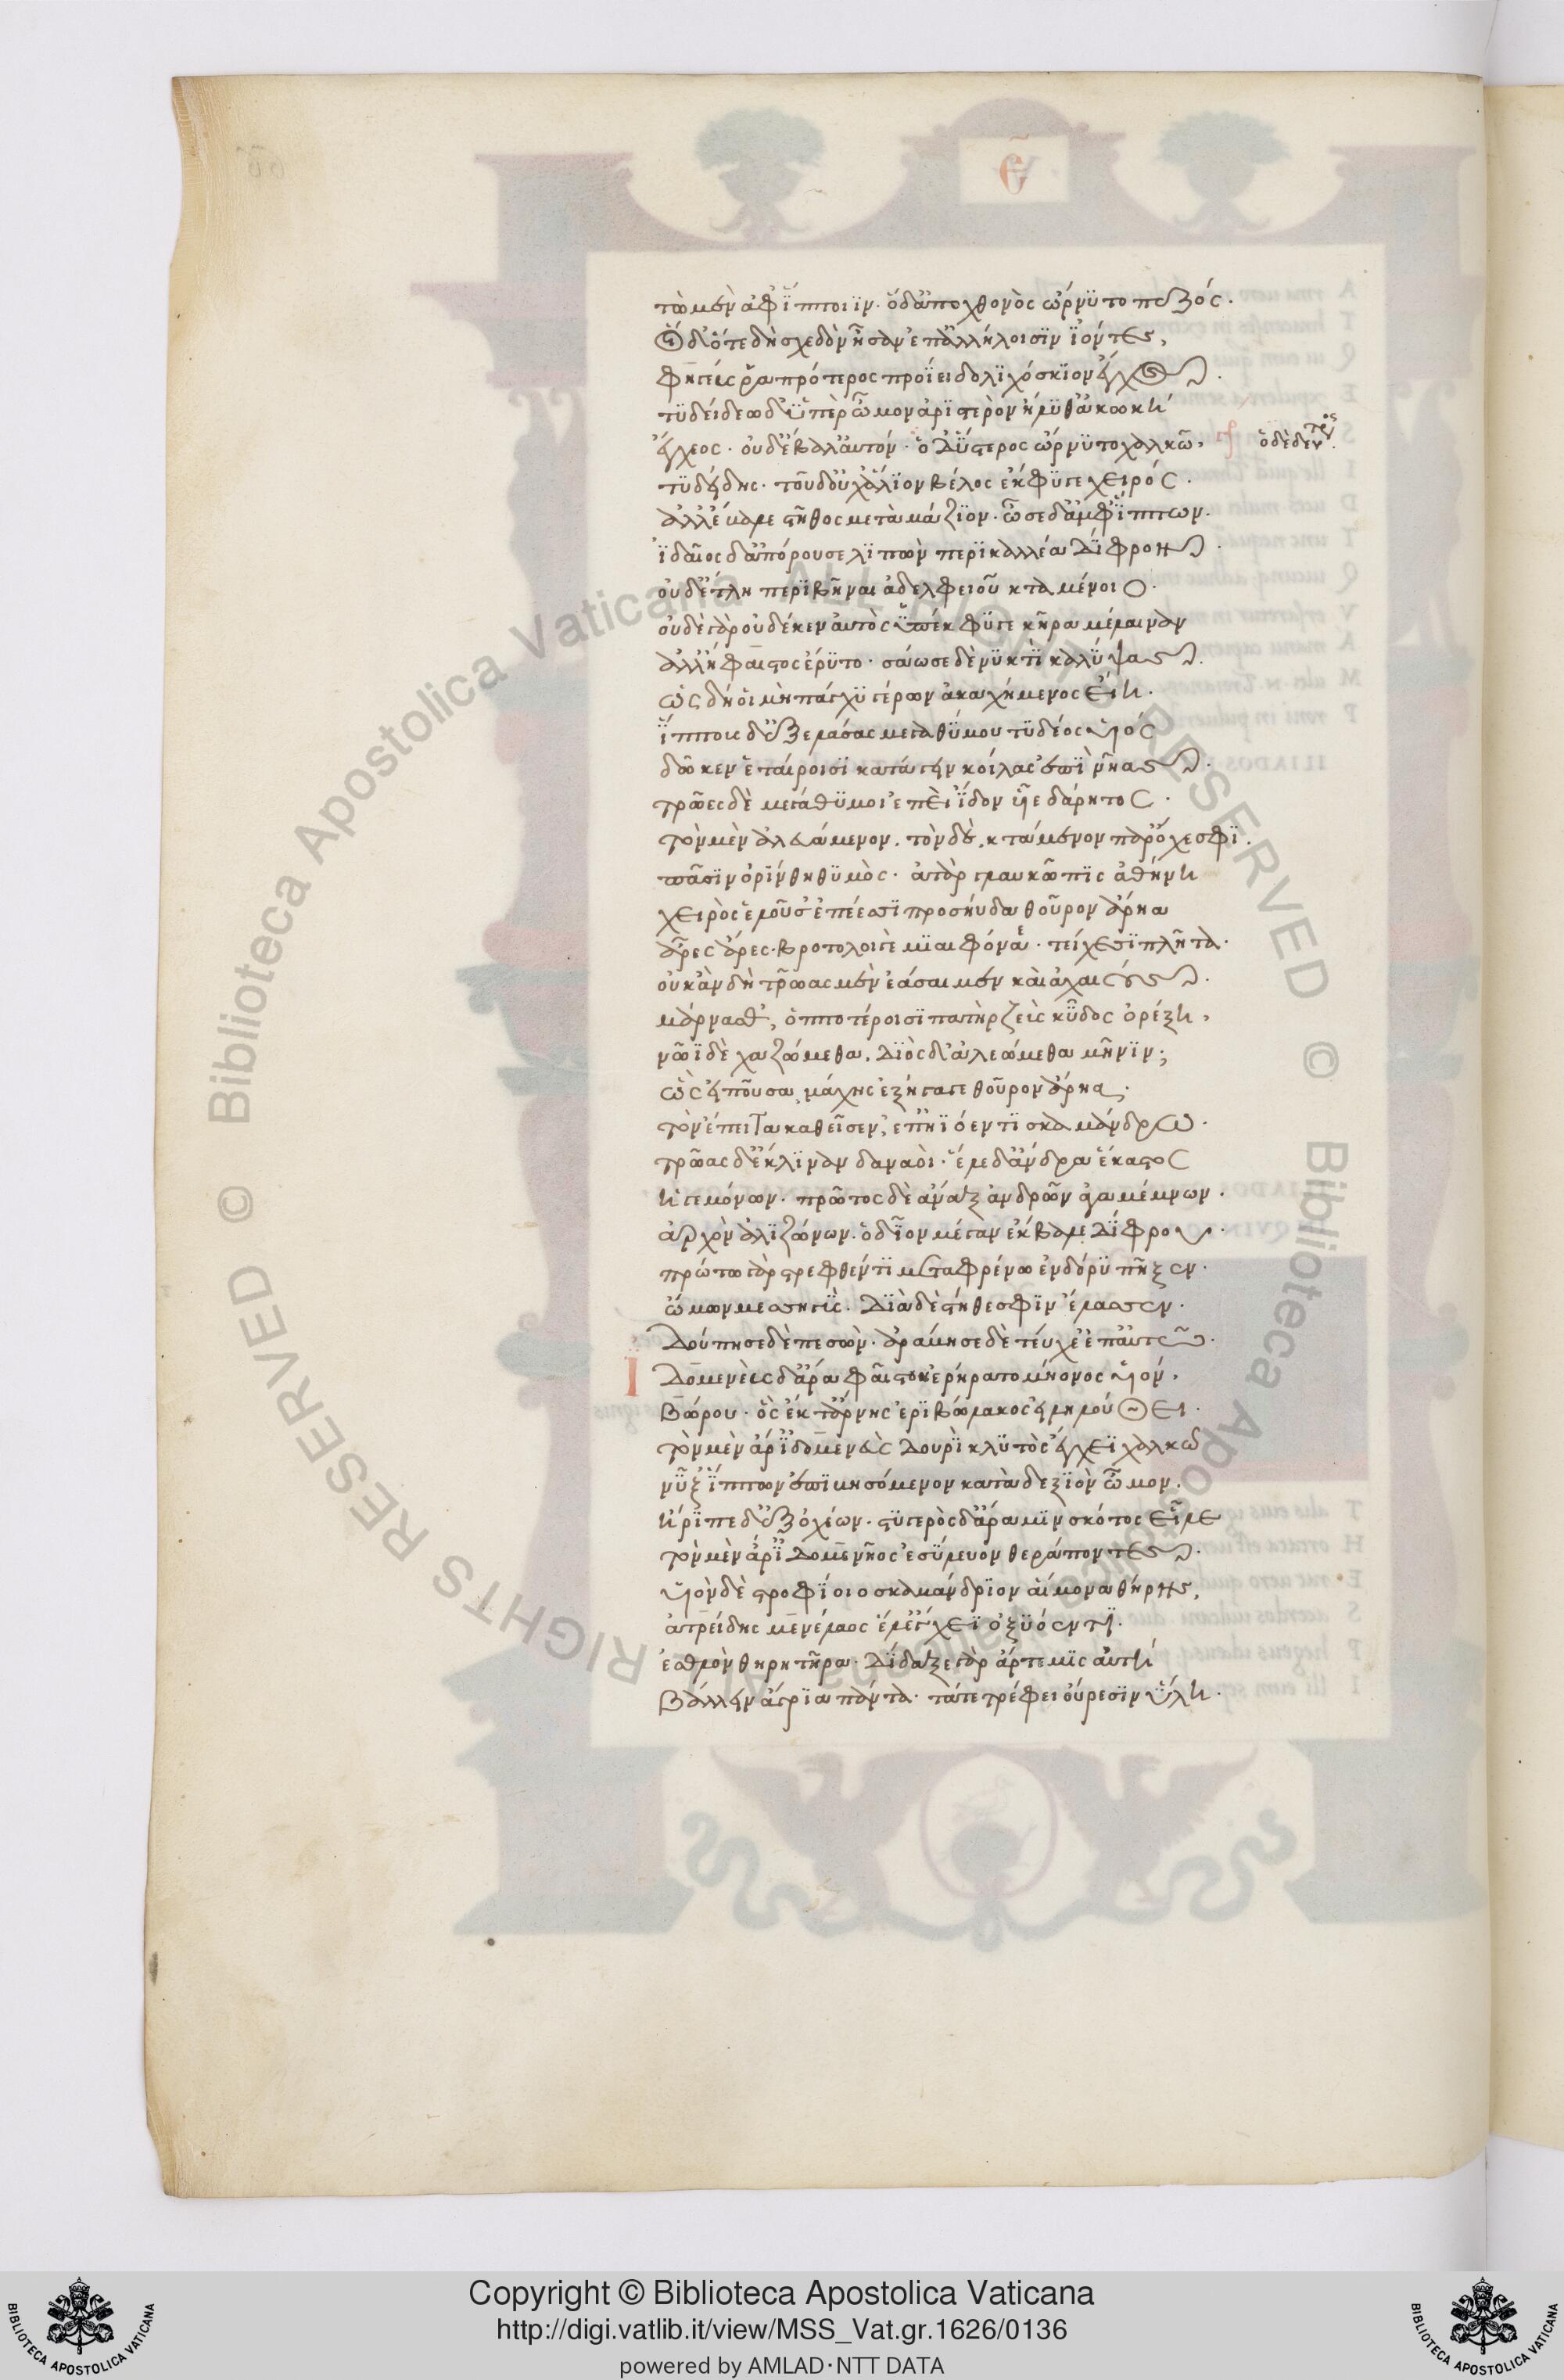 Ε
τὼ μὲν ἀφ ἵπποιϊν· ὁ δ' ἀπο χθονὸς ὤρνϋτο πεζός·
Οἱ δ' ὅτε δὴ σχεδὸν ἦσαν ἐπ' ἀλλήλοισϊν ϊόντες,
φηγεὺς ῥα πρότερος προΐει δολϊχόσκϊον ἔγχος·
τϋδείδεω δ' ϋπὲρ ὦμον ἀρϊστερὸν ἤλϋθ' ἀκωκὴ
ἔγχεος· οὐδ' ἔβαλ' ἀυτόν· ὁ δ' ϋστερος ὤρνϋτο χαλκῶ,
ὁ δὲ δεύτερος
τϋδείδης· τοῦ δ' οὐχ ἅλϊον βέλος ἔκφϋγε χειρός·
ἀλλ' ἔβαλε στῆθος μεταμάζϊον· ὦσε δ' ἀφ' ἵππων·
ϊδαῖος δ' ἀπόρουσε λϊπὼν περϊκαλλέα δίφρον·
οὐδ' ἔτλη περϊβῆναι ἀδελφειοῦ κταμένοιο·
οὐδὲ γὰρ οὐδέ κεν ἀυτὸς ϋπέκφϋγε κῆρα μέλαιναν
ἀλλ' ἥφαιστος ἔρϋτο· σάωσε δὲ νϋκτὶ καλϋψας·
ὡς δή οἱ μὴ πάγχϋ γέρων ἀκαχήμενος εἴη·
ἵππους δ' ἐξελάσας μεγαθϋμου τϋδέος υἱὸς
δῶκεν ἑταίροισϊ κατάγειν κοίλας ἐπὶ νῆας·
τρῶες δὲ μεγάθϋμοι ἐπεὶ ϊδον υἷε δάρητος·
τὸν μὲν ἀλευάμενον. τὸν δὲ. κτάμενον παρ' ὄχεσφϊ·
πᾶσϊν ὀρϊνθη θϋμὸς· ἀτὰρ γλαυκῶπϊς ἀθήνη
χειρὸς ἑλοῦσ' ἐπέεσσϊ προσηύδα θοῦρον ἄρηα
ἆρες ἄρες· βροτολοιγὲ μϊαιφόνε· τειχεσϊπλῆτα·
οὐκ ἂν δὴ τρῶας μὲν ἐάσαιμεν καὶ ἀχαιούς·
μάρνασθ', ὁπποτέροισϊ πατὴρ ζεὺς κῦδος ὀρέξη,
νῶϊ δὲ χαζώμεθα. δϊὸς δ' ἀλεώμεθα μῆνϊν;
ὡς εἰποῦσα μάχης ἐξήγαγε θοῦρον ἄρηα·
τὸν ἔπειτα καθεῖσεν, ἐπ' ἠϊόεντϊ σκαμάνδρω·
τρῶας δ' ἔκλϊναν δαναοὶ· ἕλε δ' ἄνδρα ἕκαστος
ἡγεμόνων· πρῶτος δὲ ἄναξ ἀνδρῶν ἀγαμέμνων·
ἀρχὸν ἁλϊζώνων. ὁδῖον μέγαν ἔκβαλε δίφρου·
πρώτω γὰρ στρεφθέντϊ μεταφρένω ἐν δόρϋ πῆξεν·
ὤμων μεσσηγὺς. δϊὰ δὲ στήθεσφϊν ἔλασσεν·
Δούπησε δὲ πεσὼν· ἀράβησε δὲ τεύχε' ἐπ' ἀυτῶ·
Ϊδομενεὺς δ' ἄρα φαῖστον ἐνήρατο μήονος υἱόν,
βώρου· ὃς ἐκ τάρνης ἐρϊβώλακος εἰληλούθει·
τὸν μὲν ἄρ' ϊδομενεὺς δουρὶ κλϋτὸς ἔγχεϊ χαλκῶ
νϋξ' ἵππων ἐπϊβησόμενον κατὰ δεξϊὸν ὦμον·
ἤρϊπε δ' ἐξ ὀχέων· στϋγερὸς δ' ἄρα μϊν σκότος εἷλε
τὸν μὲν ἄρ' ϊδομενῆος ἐσϋλευον θεράποντες·
υἱὸν δὲ στροφίοιο σκαμάνδρϊον αἵμονα θήρης,
ἀτρείδης μενέλαος ἕλ' ἔγχεϊ ὀξϋόεντϊ·
ἐσθλὸν θηρητῆρα· δίδαξε γὰρ ἄρτεμϊς ἀυτὴ
βάλλειν ἄγρϊα πάντα· τάτε τρέφει οὔρεσϊν ὕλη·
© Biblioteca Apostolica Vaticana ALL RIGHTS RESERVED
© Biblioteca Apostolica Vaticana ALL RIGHTS RESERVED
Copyright © Biblioteca Apostolica Vaticana
http://digi.vatlib.it/view/MSS_Vat.gr.1626/0136
powered by AMLAD·NTT DATA
BIBLIOTECA APOSTOLICA VATICANA
BIBLIOTECA APOSTOLICA VATICANA